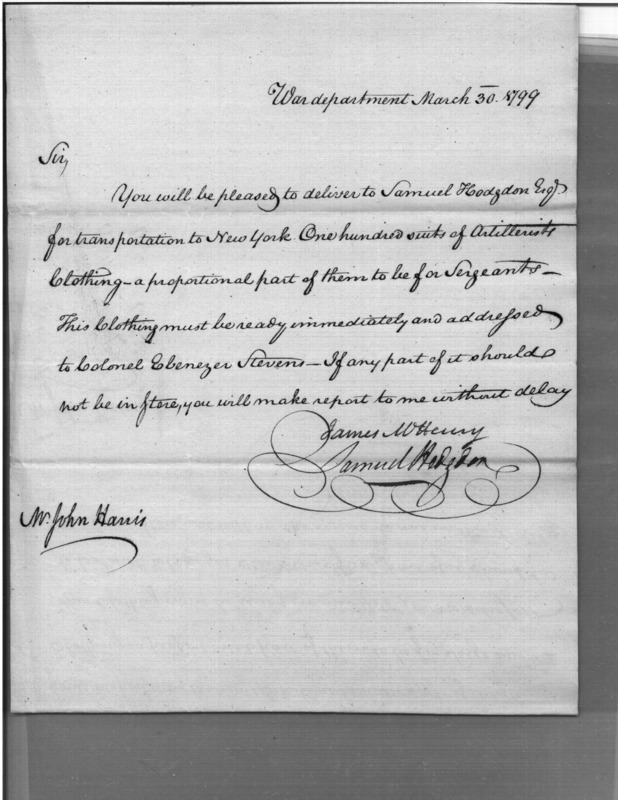 War department March 30. 1799
Sir,
You will be pleased to deliver to Samuel Hodgdon Esqr.
for transportation to New York. One hundred suits of Artillerists
Clothing - a proportional part of them to be for Sergeants -
This Clothing must be ready immediately and addressed
to Colonel Ebenezer Stevens - If any part of it should
not be in store, you will make report to me without delay
James McHenry
Samuel Hodgdon
Mr. John Harris